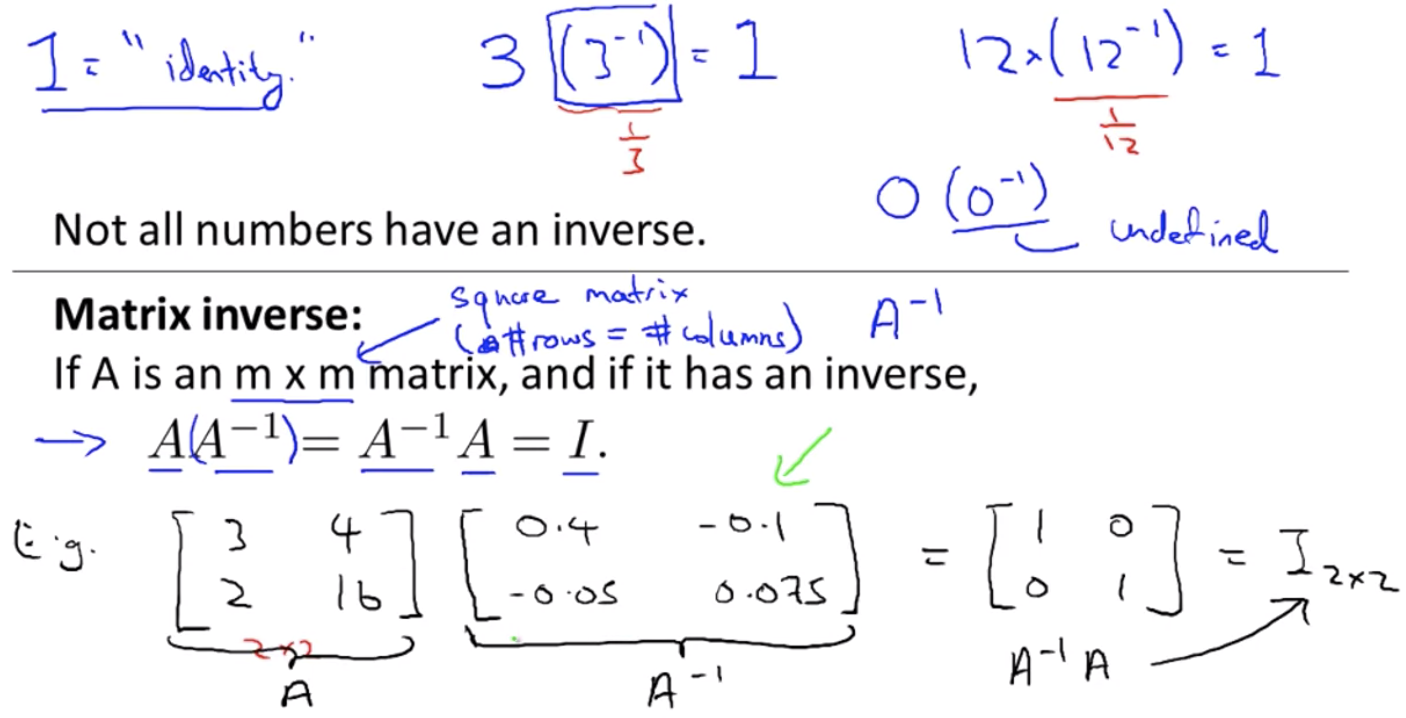 1 = "identity."
3 (3⁻¹) = 1
1/3
12×(12⁻¹) = 1
1/12
0 (0⁻¹) undefined
Not all numbers have an inverse.
Matrix inverse:
square matrix
(#rows = #columns) A⁻¹
If A is an m x m matrix, and if it has an inverse,
→ A(A⁻¹) = A⁻¹A = I.
E.g. [3 4; 2 16] [0.4 -0.1; -0.05 0.075] = [1 0; 0 1] = I 2×2
2×2
A A⁻¹ A⁻¹A